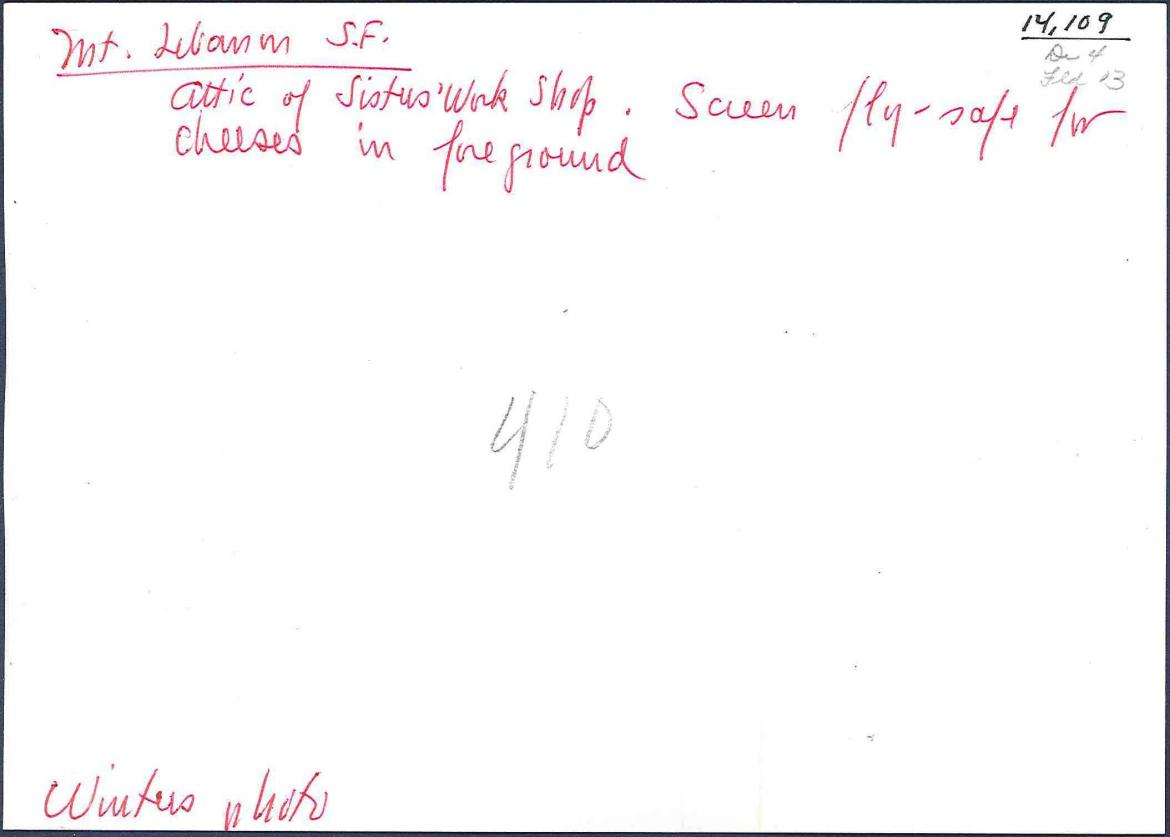 14,109
Dr 4
Fld 13
Mt. Lebanon S.F.
Attic of Sisters' Work Shop. Screen fly-safe for
cheeses in foreground
410
Winters photo